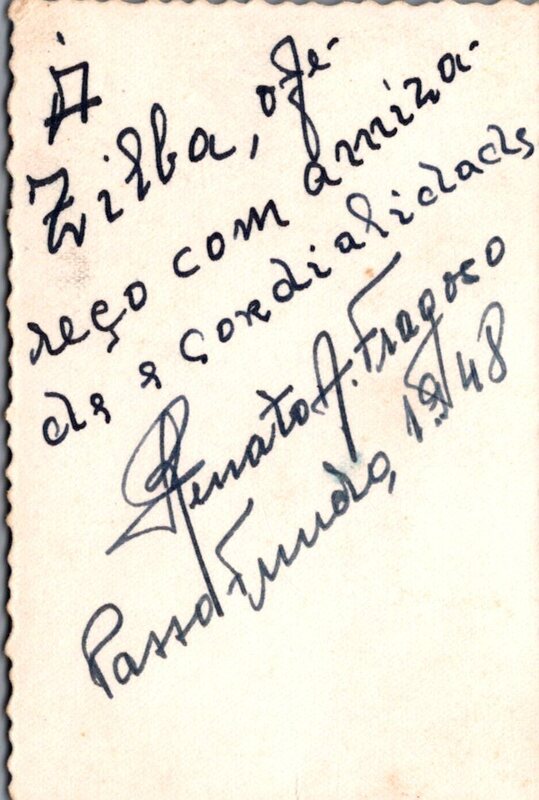 À
Zilba, ofe-
reço com amiza-
de e cordialidade
Renato A. Fragoso
Passo Fundo, 1948